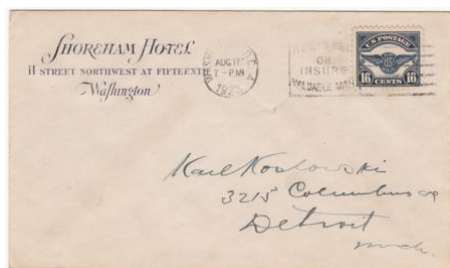 SHOREHAM HOTEL
H STREET NORTHWEST AT FIFTEENTH
Washington
AUG 17
7-PM
1923
OR
INSURE
VALUABLE MAIL
U.S. POSTAGE
16 CENTS 16
Karl Koslowski
3215 Columbus
Detroit
Mich.